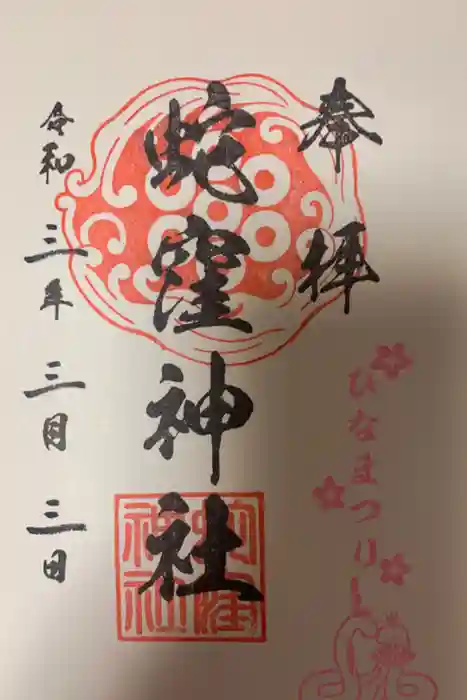 奉拝
蛇窪神社
令和三年三月三日
ひなまつり
蛇窪神社